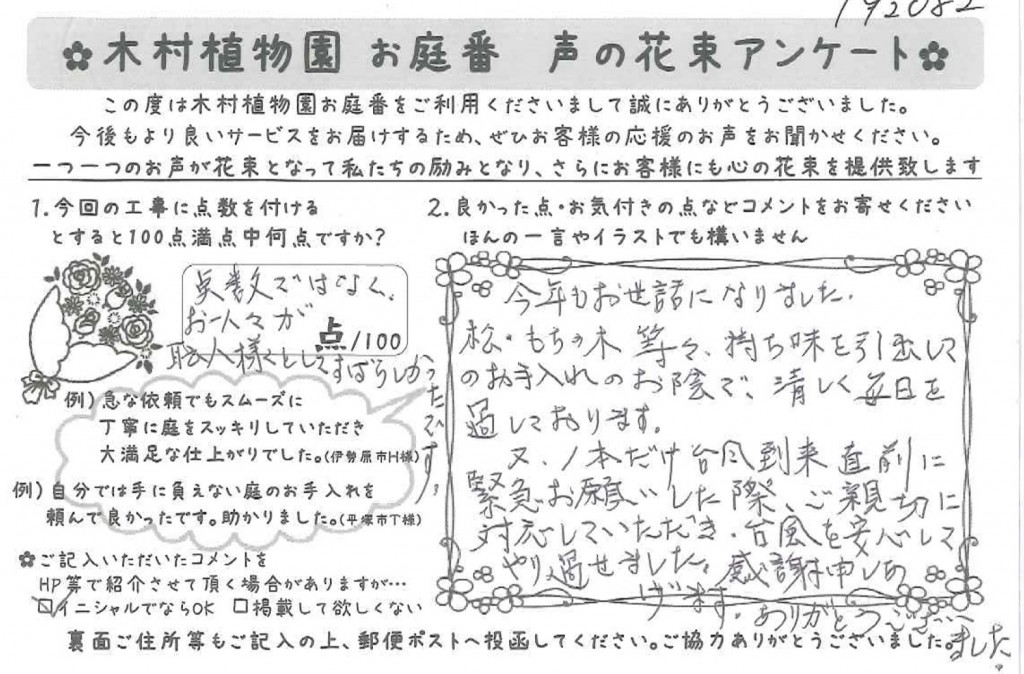 192082
✿木村植物園 お庭番 声の花束アンケート✿
この度は木村植物園お庭番をご利用くださいまして誠にありがとうございました。
今後もより良いサービスをお届けするため、ぜひお客様の応援のお声をお聞かせください。
一つ一つのお声が花束となって私たちの励みとなり、さらにお客様にも心の花束を提供致します
1.今回の工事に点数を付ける
とすると100点満点中何点ですか?
点数ではなく、
お一人々が
点/100
職人様としてすばらしかったです。
例)急な依頼でもスムーズに
丁寧に庭をスッキリしていただき
大満足な仕上がりでした。(伊勢原市H様)
例)自分では手に負えない庭のお手入れを
頼んで良かったです。助かりました。(平塚市T様)
✿ご記入いただいたコメントを
HP等で紹介させて頂く場合がありますが…
☑イニシャルでならOK □掲載して欲しくない
2.良かった点・お気付きの点などコメントをお寄せください
ほんの一言やイラストでも構いません
今年もお世話になりました.
松・もちの木 等々、持ち味を引出して
のお手入れのお陰で、清しく毎日を
過しております。
又、1本だけ台風到来直前に
緊急お願いした際、ご親切に
対応していただき、台風を安心して
やり過せました。感謝申しあ
げます.ありがとうござい
ました。
裏面ご住所等もご記入の上、郵便ポストへ投函してください。ご協力ありがとうございました。